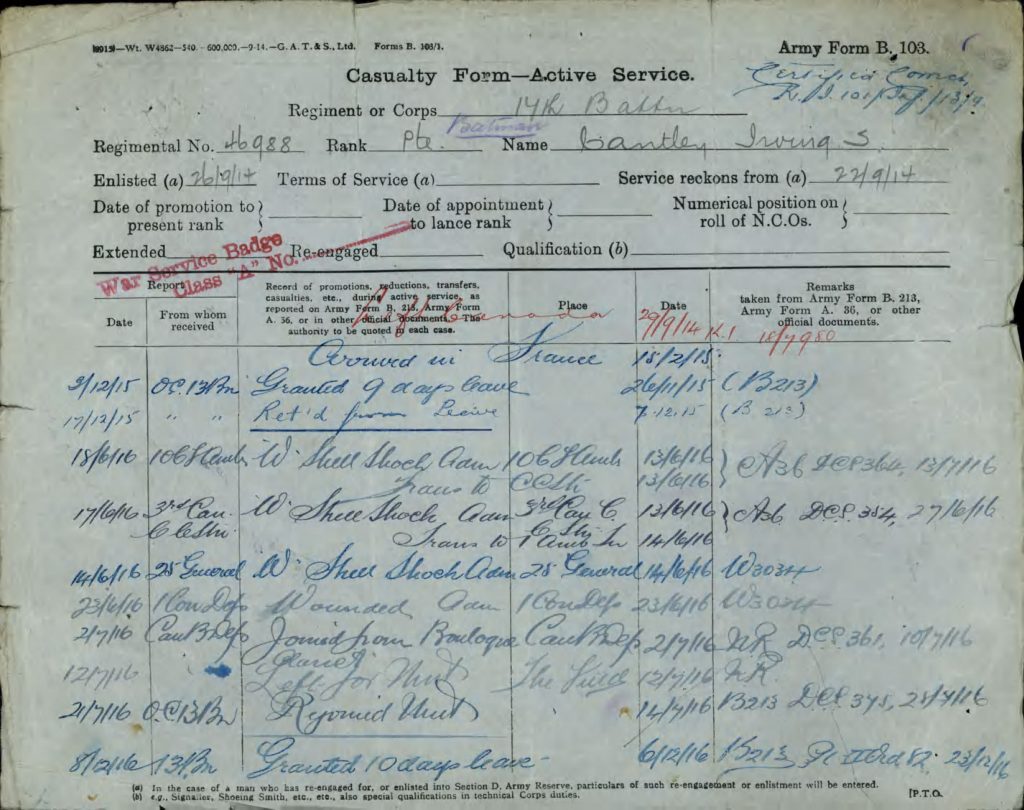 (8915)—Wt. W4862—540.—600,000.—9-14.—G. A. T. & S., Ltd. Forms B. 103/1.
Army Form B. 103.
Casualty Form—Active Service.
Certified Correct
Regiment or Corps 14th Battn
Batman
Regimental No. 46988 Rank Pte. Name Cantley Irving S.
Enlisted (a) 26/9/14 Terms of Service (a) Service reckons from (a) 22/9/14
Date of promotion to present rank } Date of appointment to lance rank } Numerical position on roll of N.C.Os. }
Extended Re-engaged Qualification (b)
War Service Badge
Class "A" No.
Report
Date From whom received
Record of promotions, reductions, transfers, casualties, etc., during active service, as reported on Army Form B. 213, Army Form A. 36, or in other official documents. The authority to be quoted in each case.
Place
Date
Remarks taken from Army Form B. 213, Army Form A. 36, or other official documents.
Canada 29/9/14
Arrived in France 15/2/15.
3/12/15 O.C. 13 Bn Granted 9 days leave 26/11/15 (B213)
17/12/15 " " Ret'd from Leave 7.12.15 (B 213)
18/6/16 W. Shell Shock Adm 13/6/16 } A36 DCS 364, 13/7/16
Trans to 13/6/16
17/6/16 3rd Can. W. Shell Shock Adm 3rd Can C. 13/6/16 } A36 DCS. 354, 27/6/16
C C Stn C Stn
Trans to 1 Amb Tn 14/6/16
14/6/16 25 General W. Shell Shock Adm 25 General 14/6/16 W3034
23/6/16 1 Con Dep Wounded Adm 1 Con Dep 23/6/16 W3034
2/7/16 Can B Dep Joined from Boulogne Can B Dep 2/7/16 NR DCS 361, 10/7/16
12/7/16 Left for Unit The Field 12/7/16 NR.
21/7/16 O.C 13 Bn Rejoined Unit 14/7/16 B213 DCS 375, 25/7/16
8/12/16 13 Bn Granted 10 days leave - 6/12/16 B213 23/12/16
(a) In the case of a man who has re-engaged for, or enlisted into Section D, Army Reserve, particulars of such re-engagement or enlistment will be entered.
(b) e.g., Signaller, Shoeing Smith, etc., etc., also special qualifications in technical Corps duties. [P.T.O.